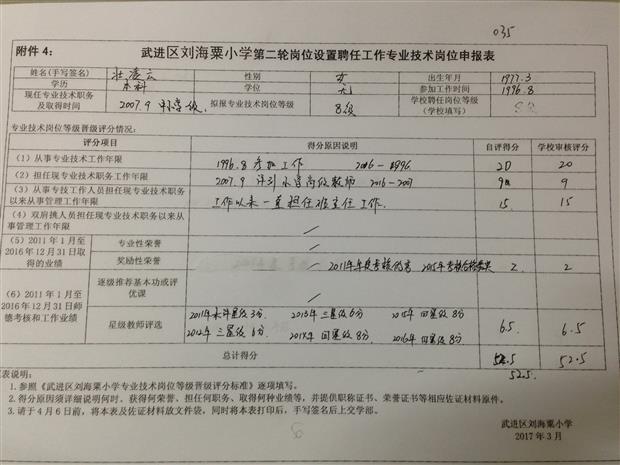 035
附件 4：
武进区刘海粟小学第二轮岗位设置聘任工作专业技术岗位申报表
姓名(手写签名) 杜凌云 性别 女 出生年月 1977.3
学历 本科 学位 无 参加工作时间 1996.8
现任专业技术职务及取得时间 2007.9 拟报专业技术岗位等级 8级 学校聘任岗位等级（学校填写） 8级
专业技术岗位等级晋级评分情况:
评分项目 得分原因说明 自评得分 学校审核评分
(1) 从事专业技术工作年限 1996.8 参加工作 2016-1996 20 20
(2) 担任现专业技术职务年限 2007.9 评到小学高级教师 2016-2007 9 9
(3) 从事专技工作人员担任现专业技术职务以来从事管理工作年限 工作以来一直担任班主任工作. 15 15
(4) 双肩挑人员担任现专业技术职务以来从事管理工作年限 /
(5) 2011 年 1 月至 2016 年 12 月 31 日取得的业绩 专业性荣誉 /
奖励性荣誉 / 2011年年度考核优秀 2015年考核 2 2
(6) 2011 年 1 月至 2016 年 12 月 31 日师德考核和工作业绩 逐级推荐基本功或评优课 /
星级教师评选 2011年 3分 2013年三星级6分 2015年四星级8分 6.5 6.5
2012年三星级6分 2014年四星级8分 2016年四星级8分
总计得分 52.5
52.5
表说明：
1.参照《武进区刘海粟小学专业技术岗位等级晋级评分标准》逐项填写。
2.得分原因须详细说明何时、获得何荣誉、担任何职务、取得何种业绩等，并提供职称证书、荣誉证书等相应佐证材料原件。
3.请于 4 月 6 日前，将本表及佐证材料放文件袋，同时将本表打印后，手写签名后上交学部。
武进区刘海粟小学
2017 年 3 月